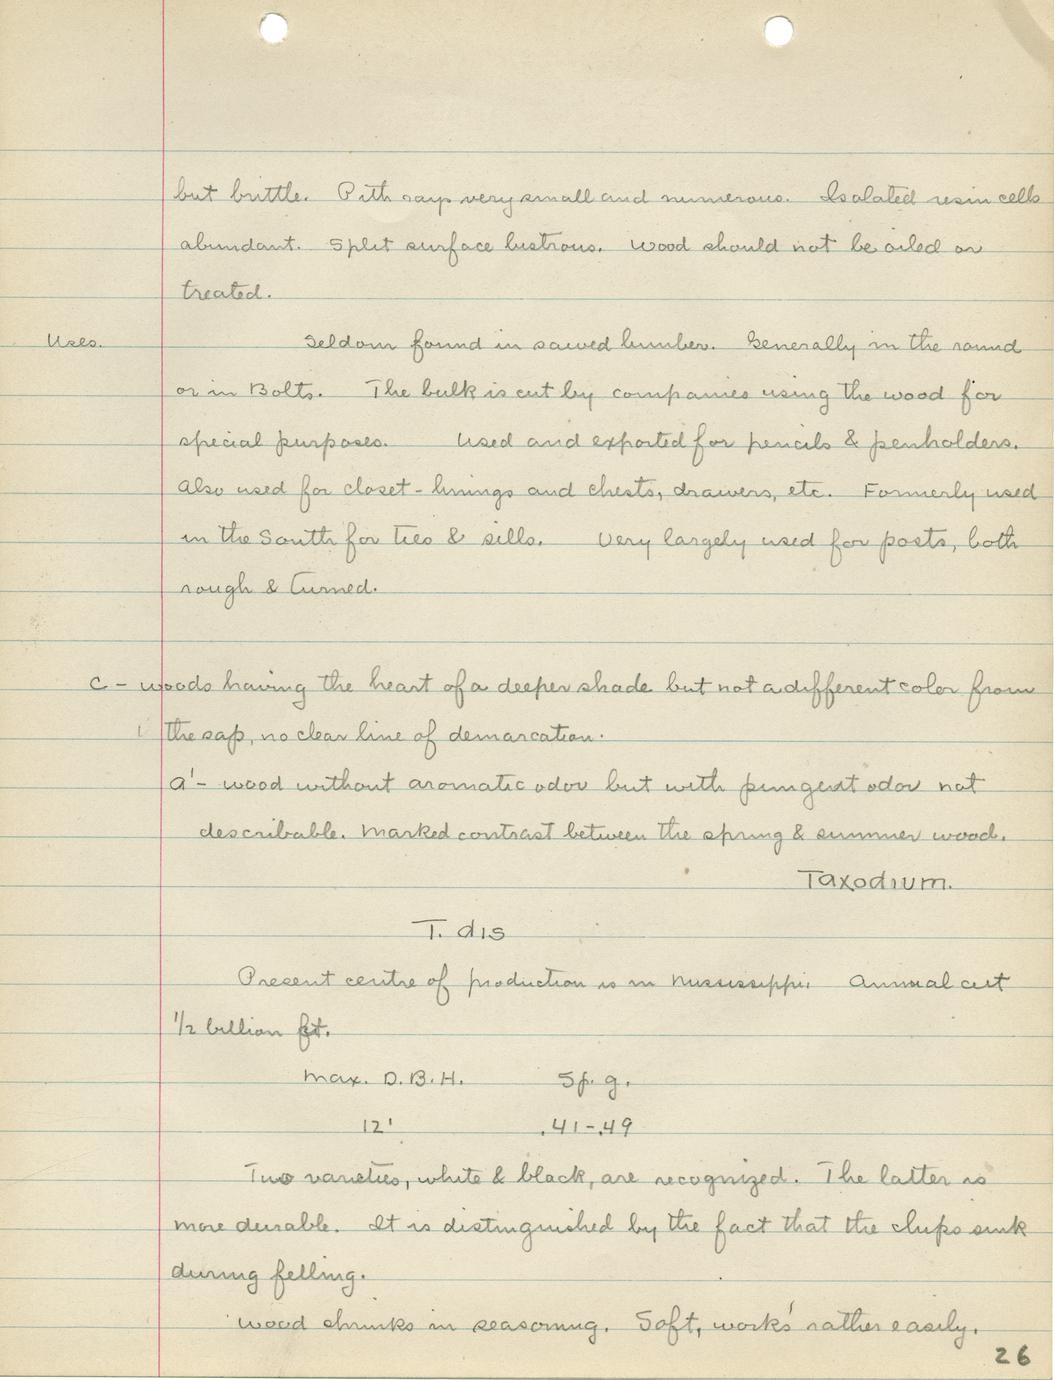 but brittle. Pith rays very small and numerous. Isolated resin cells
abundant. Split surface lustrous. Wood should not be oiled or
treated.
Uses. Seldom found in sawed lumber. Generally in the round
or in Bolts. The bulk is cut by companies using the wood for
special purposes. Used and exported for pencils & penholders.
Also used for closet-linings and chests, drawers, etc. Formerly used
in the South for ties & sills. Very largely used for posts, both
rough & turned.
C - woods having the heart of a deeper shade but not a different color from
the sap, no clear line of demarcation.
a' - wood without aromatic odor but with pungent odor not
describable. Marked contrast between the spring & summer wood.
Taxodium.
T. dis
Present centre of production is in Mississippi. Annual cut
1/2 billion ft.
Max. D.B.H. Sp. g.
12' .41-.49
Two varieties, white & black, are recognized. The latter is
more durable. It is distinguished by the fact that the chips sink
during felling.
Wood shrinks in seasoning. Soft, works rather easily.
26